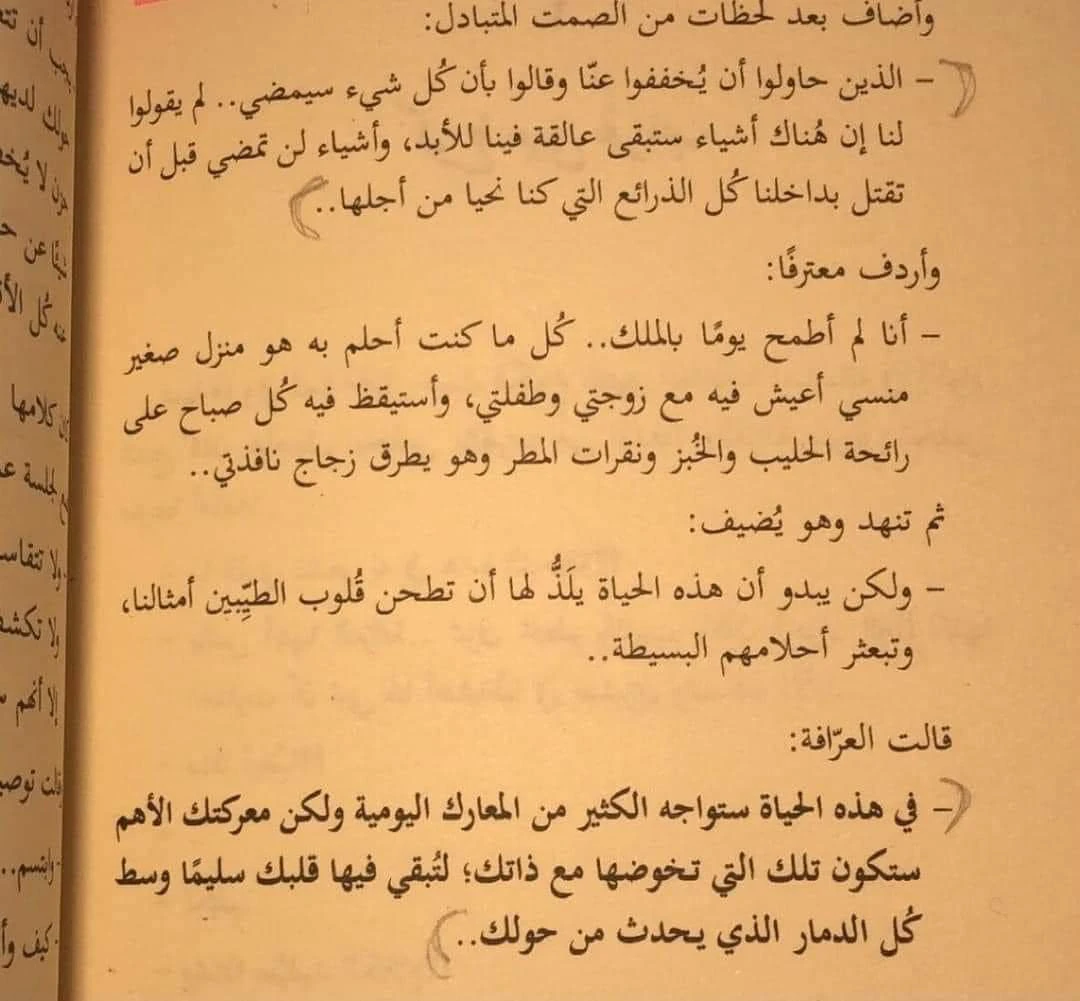 وأضاف بعد لحظات من الصمت المتبادل:
– الذين حاولوا أن يُخففوا عنّا وقالوا بأن كُل شيء سيمضي.. لم يقولوا
لنا إن هُناك أشياء ستبقى عالقة فينا للأبد، وأشياء لن تمضي قبل أن
تقتل بداخلنا كُل الذرائع التي كنا نحيا من أجلها..
وأردف معترفًا:
– أنا لم أطمح يومًا بالملك.. كُل ما كنت أحلم به هو منزل صغير
منسي أعيش فيه مع زوجتي وطفلتي، وأستيقظ فيه كُل صباح على
رائحة الحليب والخُبز ونقرات المطر وهو يطرق زجاج نافذتي..
ثم تنهد وهو يُضيف:
– ولكن يبدو أن هذه الحياة يلَذُّ لها أن تطحن قُلوب الطيِّبين أمثالنا،
وتبعثر أحلامهم البسيطة..
قالت العرّافة:
– في هذه الحياة ستواجه الكثير من المعارك اليومية ولكن معركتك الأهم
ستكون تلك التي تخوضها مع ذاتك؛ لتُبقي فيها قلبك سليمًا وسط
كُل الدمار الذي يحدث من حولك..